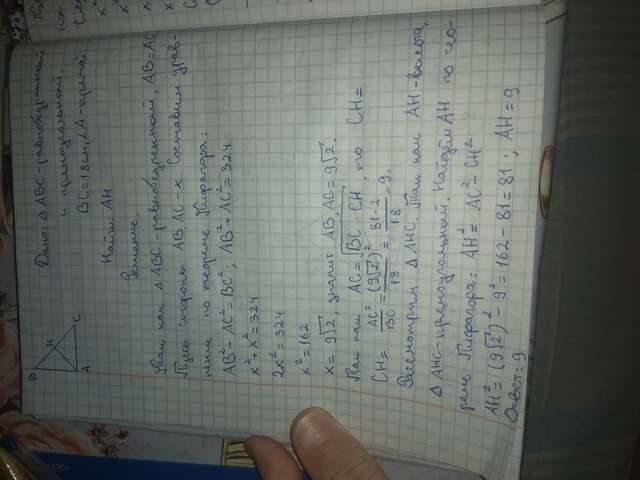 Дано: Δ ABC - равнобедренный
и прямоугольный.
BC = 18 см, ∠A - прямой
Найти: AH
Решение.
B
H
A
C
Так как Δ ABC - равнобедренный, AB = AC
Пусть стороны AB, AC - x. Составим урав-
нение по теореме Пифагора:
AB² - AC² = BC²; AB² - AC² = 324
x² + x² = 324
2x² = 324
x² = 162
x = 9√2, значит AB, AC = 9√2.
Так как AC = √BC · CH, то CH =
CH = AC²/BC = (9√2)²/18 = 81·2/18 = 9.
Рассмотрим Δ AHC. Так как AH - высота,
Δ AHC - прямоугольный. Найдём AH по тео-
реме Пифагора: AH² = AC² - CH²
AH² = (9√2)² - 9² = 162 - 81 = 81; AH = 9
Ответ: 9